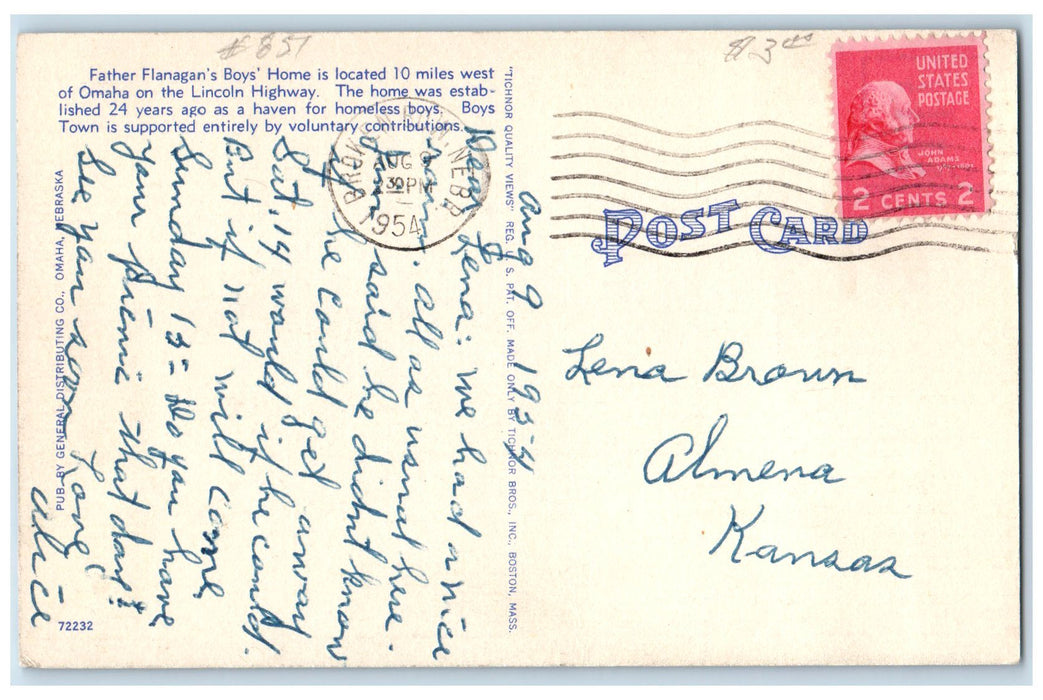 # 857
$3
Father Flanagan's Boys' Home is located 10 miles west
of Omaha on the Lincoln Highway. The home was estab-
lished 24 years ago as a haven for homeless boys. Boys
Town is supported entirely by voluntary contributions.
"TICHNOR QUALITY VIEWS" REG. U. S. PAT. OFF. MADE ONLY BY TICHNOR BROS., INC., BOSTON, MASS.
PUB. BY GENERAL DISTRIBUTING CO., OMAHA, NEBRASKA
72232
BROKEN BOW, NEBR.
AUG 9
2 30 PM
1954
UNITED
STATES
POSTAGE
JOHN
ADAMS
2 CENTS 2
POST CARD
Aug 9 1954
Dear Lena: We had a nice
rain. all as usual here.
said he didn't know
if he could get away
Sat, 14 would if he could.
But if not will come
Sunday 15 = Do you have
your picnic that day?
See you soon Love
Alice
Lena Brown
Almena
Kansas